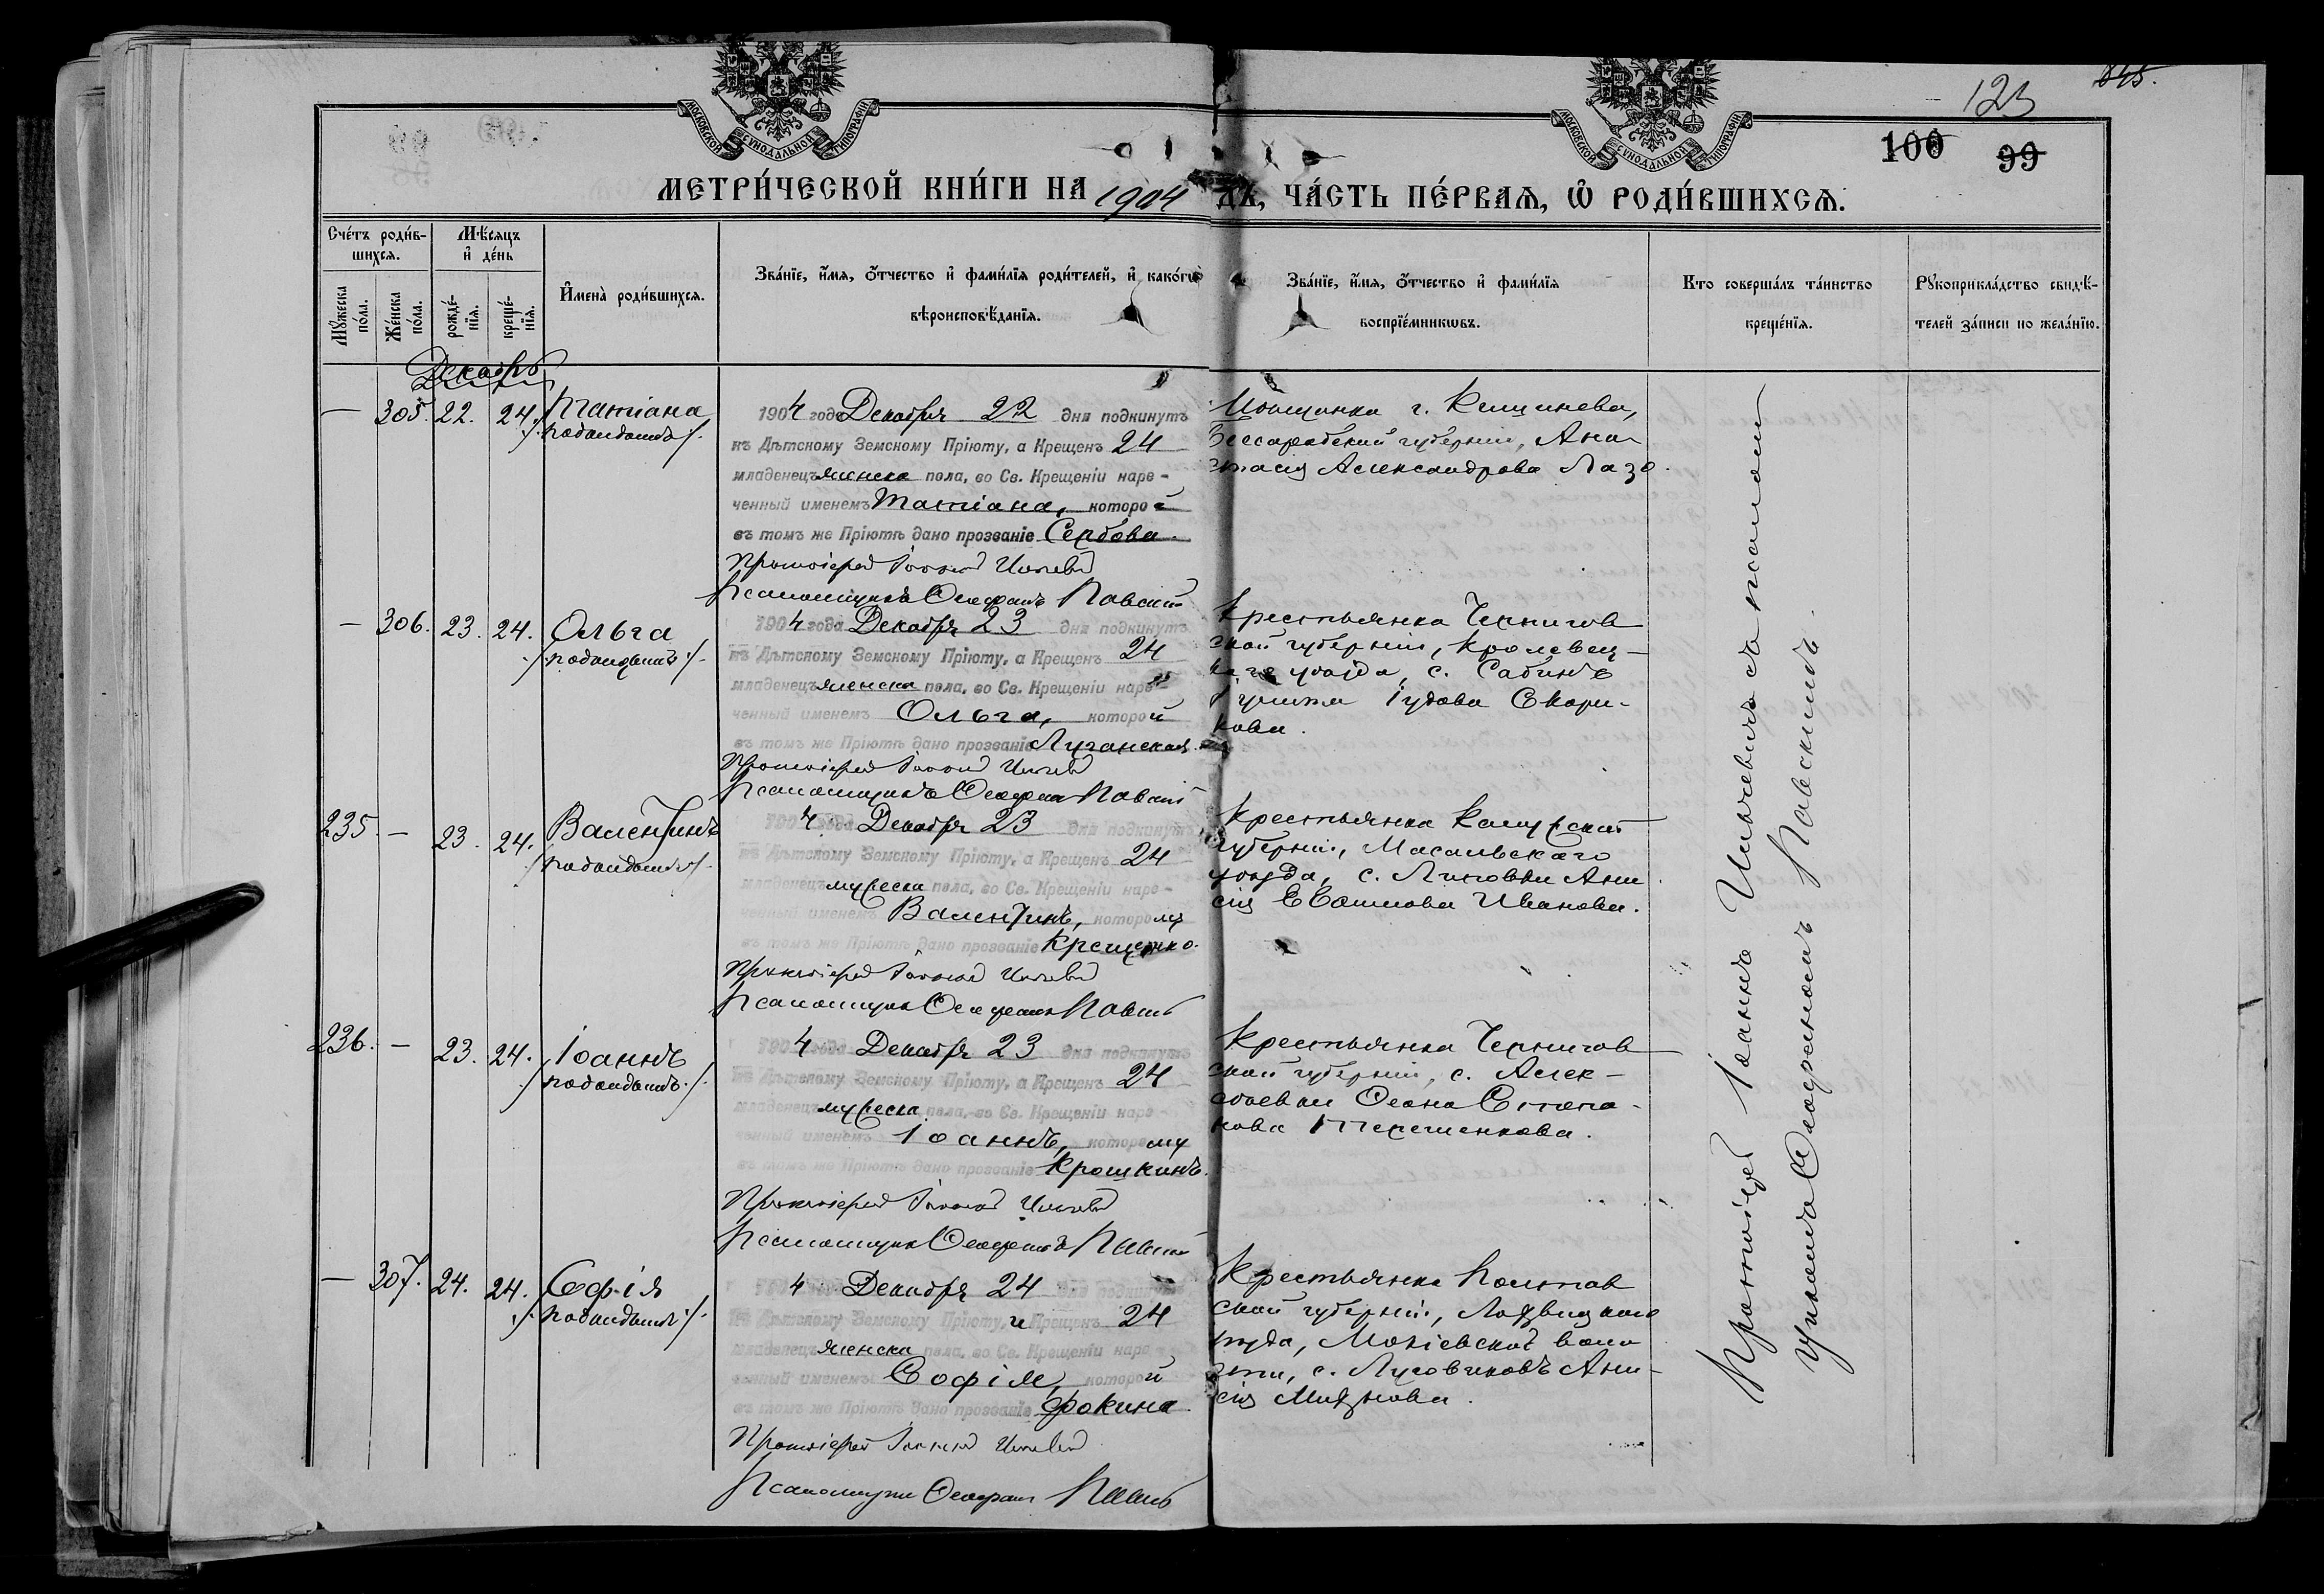 МОСКОВСКОЙ СУНОДАЛЬНОЙ ТИПОГРАФІИ
МОСКОВСКОЙ СУНОДАЛЬНОЙ ТИПОГРАФІИ
123
845.
100
99
МЕТРИ́ЧЕСКОЙ КНИ́ГИ НА 1904
ДЪ, ЧА́СТЬ ПЕ́РВАѦ, Ѡ҆ РОДИ́ВШИХСѦ.
Сче́тъ роди́в-
шихсѧ.
Мꙋ́жеска по́ла.
Же́нска по́ла.
Мѣ́сѧцъ
и҆ де́нь
рожде́-
нїѧ.
креще́-
нїѧ.
И҆мена̀ роди́вшихсѧ.
Зва́нїе, и҆́мѧ, ѻ҆́тчество и҆ фами́лїѧ роди́телей, и҆ како́гѡ
вѣроисповѣ́данїѧ.
Зва́нїе, и҆́мѧ, ѻ҆́тчество и҆ фами́лїѧ
воспрїе́мникѡвъ.
Кто соверша́лъ та́инство
креще́нїѧ.
Рꙋкоприкла́дство свидѣ́-
телей за́писи по жела́нїю.
Декабрь
— 305. 22. 24. Татіана
подкидышъ
1904 года Декабря 22 дня подкинутъ
къ Дѣтскому Земскому Пріюту, а Крещенъ 24
младенецъ женска пола, во Св. Крещеніи наре-
ченный именемъ Татіана, которой
въ томъ же Пріютѣ дано прозваніе Сербова.
Протоіерей Іоаннъ
Псаломщикъ Феофанъ Павскій
Мѣщанка г. Кишинева,
Бессарабской губерніи, Ана-
стасія Александрова Лазо.
— 306. 23. 24. Ольга
подкидышъ
1904 года Декабря 23 дня подкинутъ
къ Дѣтскому Земскому Пріюту, а Крещенъ 24
младенецъ женска пола, во Св. Крещеніи наре-
ченный именемъ Ольга, которой
въ томъ же Пріютѣ дано прозваніе Луганская.
Протоіерей Іоаннъ
Псаломщикъ Феофанъ Павскій
Крестьянка Чернигов
ской губерніи, Кролевец-
каго уѣзда, с.
кова.
235. — 23. 24. Валентинъ
подкидышъ
4 Декабря 23 дня подкинутъ
къ Дѣтскому Земскому Пріюту, а Крещенъ 24
младенецъ мужеска пола, во Св. Крещеніи наре-
ченный именемъ Валентинъ, которому
въ томъ же Пріютѣ дано прозваніе
Протоіерей Іоаннъ
Псаломщикъ Феофанъ Павскій
Крестьянка Калужской
губерніи, Масальскаго
уѣзда, с. Ани
сія Иванова.
236. — 23. 24. Іоаннъ
подкидышъ
4 Декабря 23 дня подкинутъ
къ Дѣтскому Земскому Пріюту, а Крещенъ 24
младенецъ мужеска пола, во Св. Крещеніи наре-
ченный именемъ Іоаннъ, которому
въ томъ же Пріютѣ дано прозваніе Крошкинъ.
Протоіерей Іоаннъ
Псаломщикъ Феофанъ Павскій
Крестьянка Чернигов
ской губерніи, с. Алек-
сѣевки Степа-
нова Терещенкова.
— 307. 24. 24. Софія
подкидышъ
4 Декабря 24 дня подкинутъ
къ Дѣтскому Земскому Пріюту, и Крещенъ 24
младенецъ женска пола, во Св. Крещеніи наре-
ченный именемъ Софія, которой
въ томъ же Пріютѣ дано прозваніе Фокина.
Протоіерей Іоаннъ
Псаломщикъ Феофанъ Павскій
Крестьянка Полтав
ской губерніи,
уѣзда, воло
сти, с. Ани-
сія
Протоіерей Іоаннъ съ псаломщи
Феофаномъ Павскимъ.